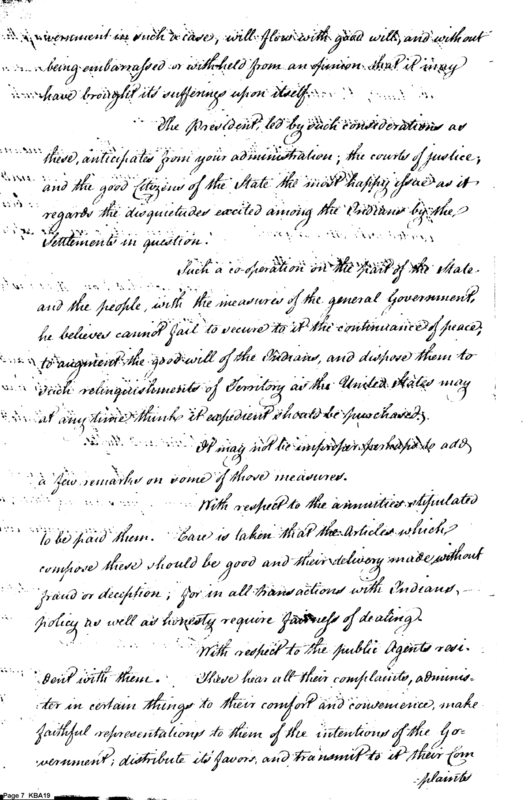 vernment in such a case, will flow with good will, and without
being embarrassed or with-held from an opinion that it may
have brought its sufferings upon itself.
The President, led by such considerations as
these, anticipates from your administration; the courts of justice;
and the good Citizens of the State the most happy issue as it
regards the disquietudes excited among the Indians by the
Settlements in question.
Such a co-operation on the part of the State
and the people, with the measures of the general Government,
he believes cannot fail to secure to it the continuance of peace;
to augment the good will of the Indians, and dispose them to
such relinquishments of Territory as the United States may
at any time think it expedient should be purchased.
It may not be improper perhaps to add
a few remarks on some of those measures.
With respect to the annuities stipulated
to be paid them. Care is taken that the Articles which
compose these should be good and their delivery made without
fraud or deception; for in all transactions with Indians,
policy as well as honesty require fairness of dealing.
With respect to the public Agents resi-
dent with them. These hear all their complaints, adminis-
ter in certain things to their comfort and convenience, make
faithful representations to them of the intentions of the Go-
vernment; distribute its favors, and transmit to it their Com
-plaints
Page 7 KBA19